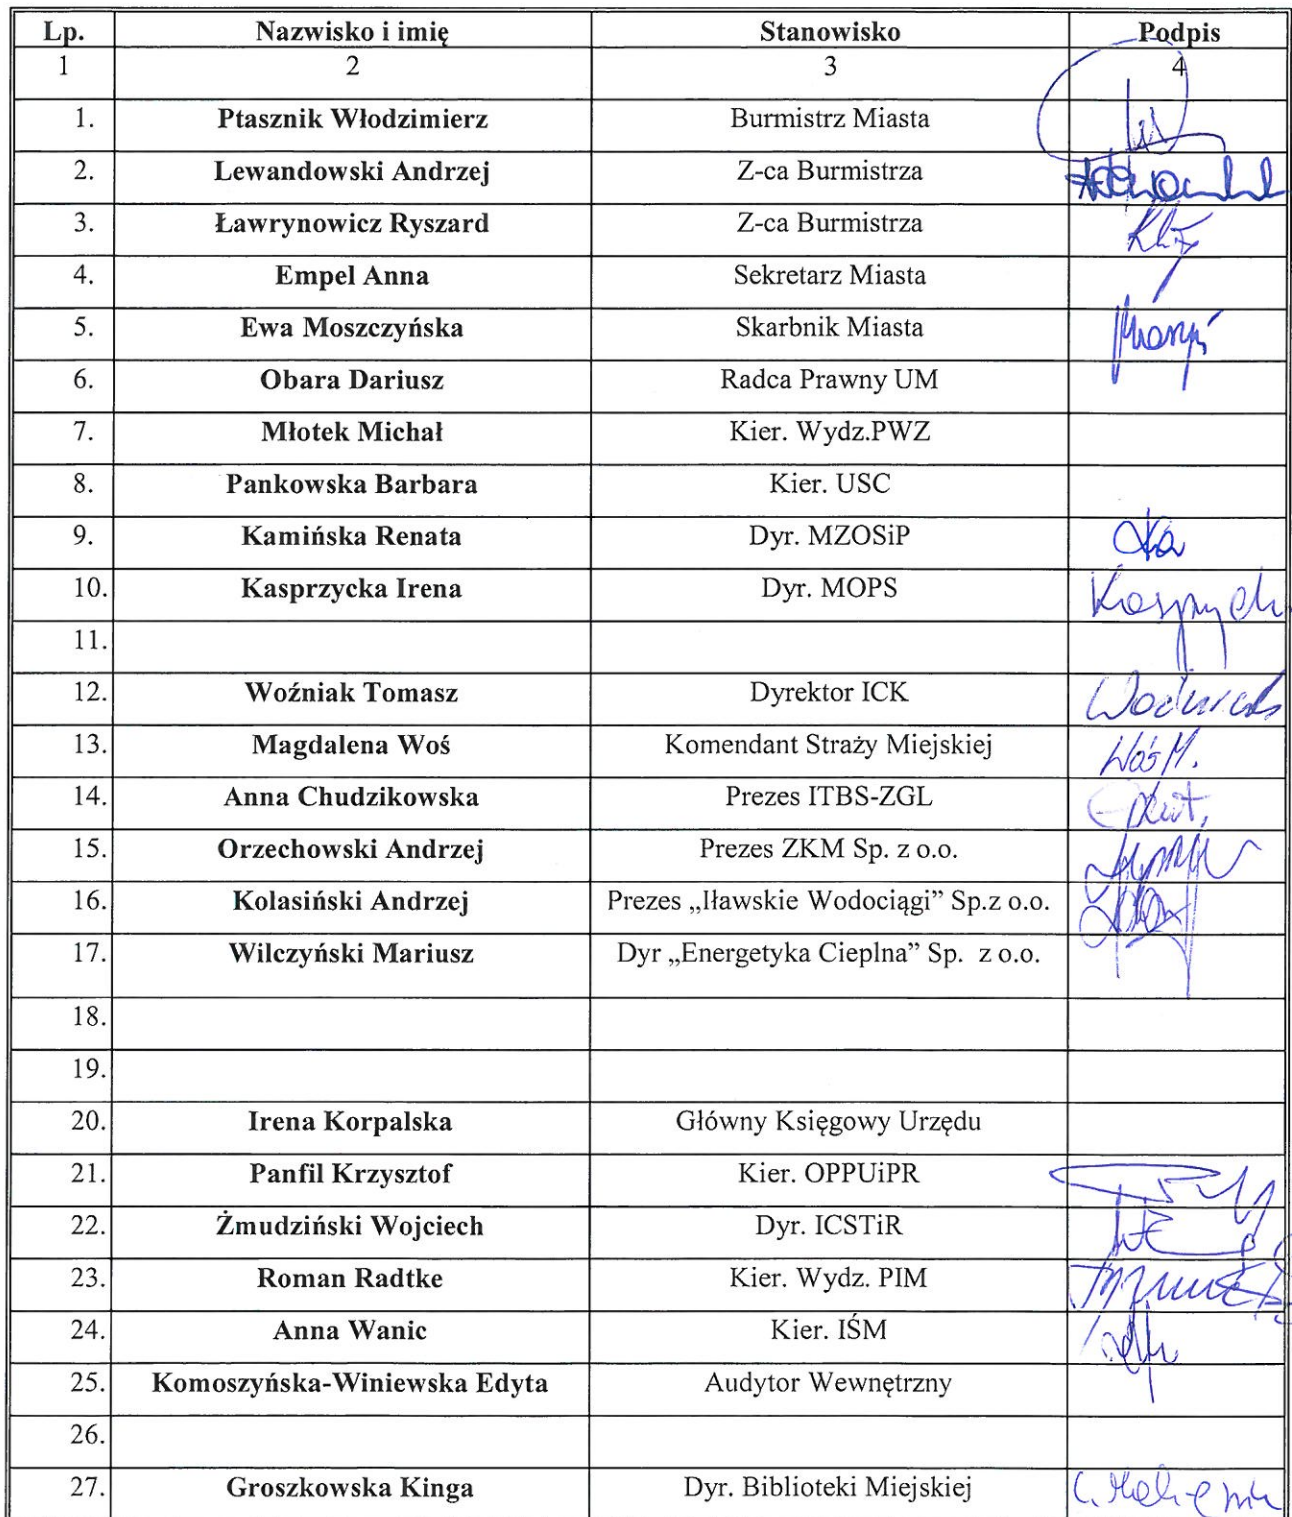 Lp. Nazwisko i imię Stanowisko Podpis
1 2 3 4
1. Ptasznik Włodzimierz Burmistrz Miasta
2. Lewandowski Andrzej Z-ca Burmistrza
3. Ławrynowicz Ryszard Z-ca Burmistrza
4. Empel Anna Sekretarz Miasta
5. Ewa Moszczyńska Skarbnik Miasta
6. Obara Dariusz Radca Prawny UM
7. Młotek Michał Kier. Wydz.PWZ
8. Pankowska Barbara Kier. USC
9. Kamińska Renata Dyr. MZOSiP
10. Kasprzycka Irena Dyr. MOPS
11.
12. Woźniak Tomasz Dyrektor ICK
13. Magdalena Woś Komendant Straży Miejskiej Woś M.
14. Anna Chudzikowska Prezes ITBS-ZGL
15. Orzechowski Andrzej Prezes ZKM Sp. z o.o.
16. Kolasiński Andrzej Prezes „Iławskie Wodociągi” Sp.z o.o.
17. Wilczyński Mariusz Dyr „Energetyka Cieplna” Sp. z o.o.
18.
19.
20. Irena Korpalska Główny Księgowy Urzędu
21. Panfil Krzysztof Kier. OPPUiPR
22. Żmudziński Wojciech Dyr. ICSTiR
23. Roman Radtke Kier. Wydz. PIM
24. Anna Wanic Kier. IŚM
25. Komoszyńska-Winiewska Edyta Audytor Wewnętrzny
26.
27. Groszkowska Kinga Dyr. Biblioteki Miejskiej